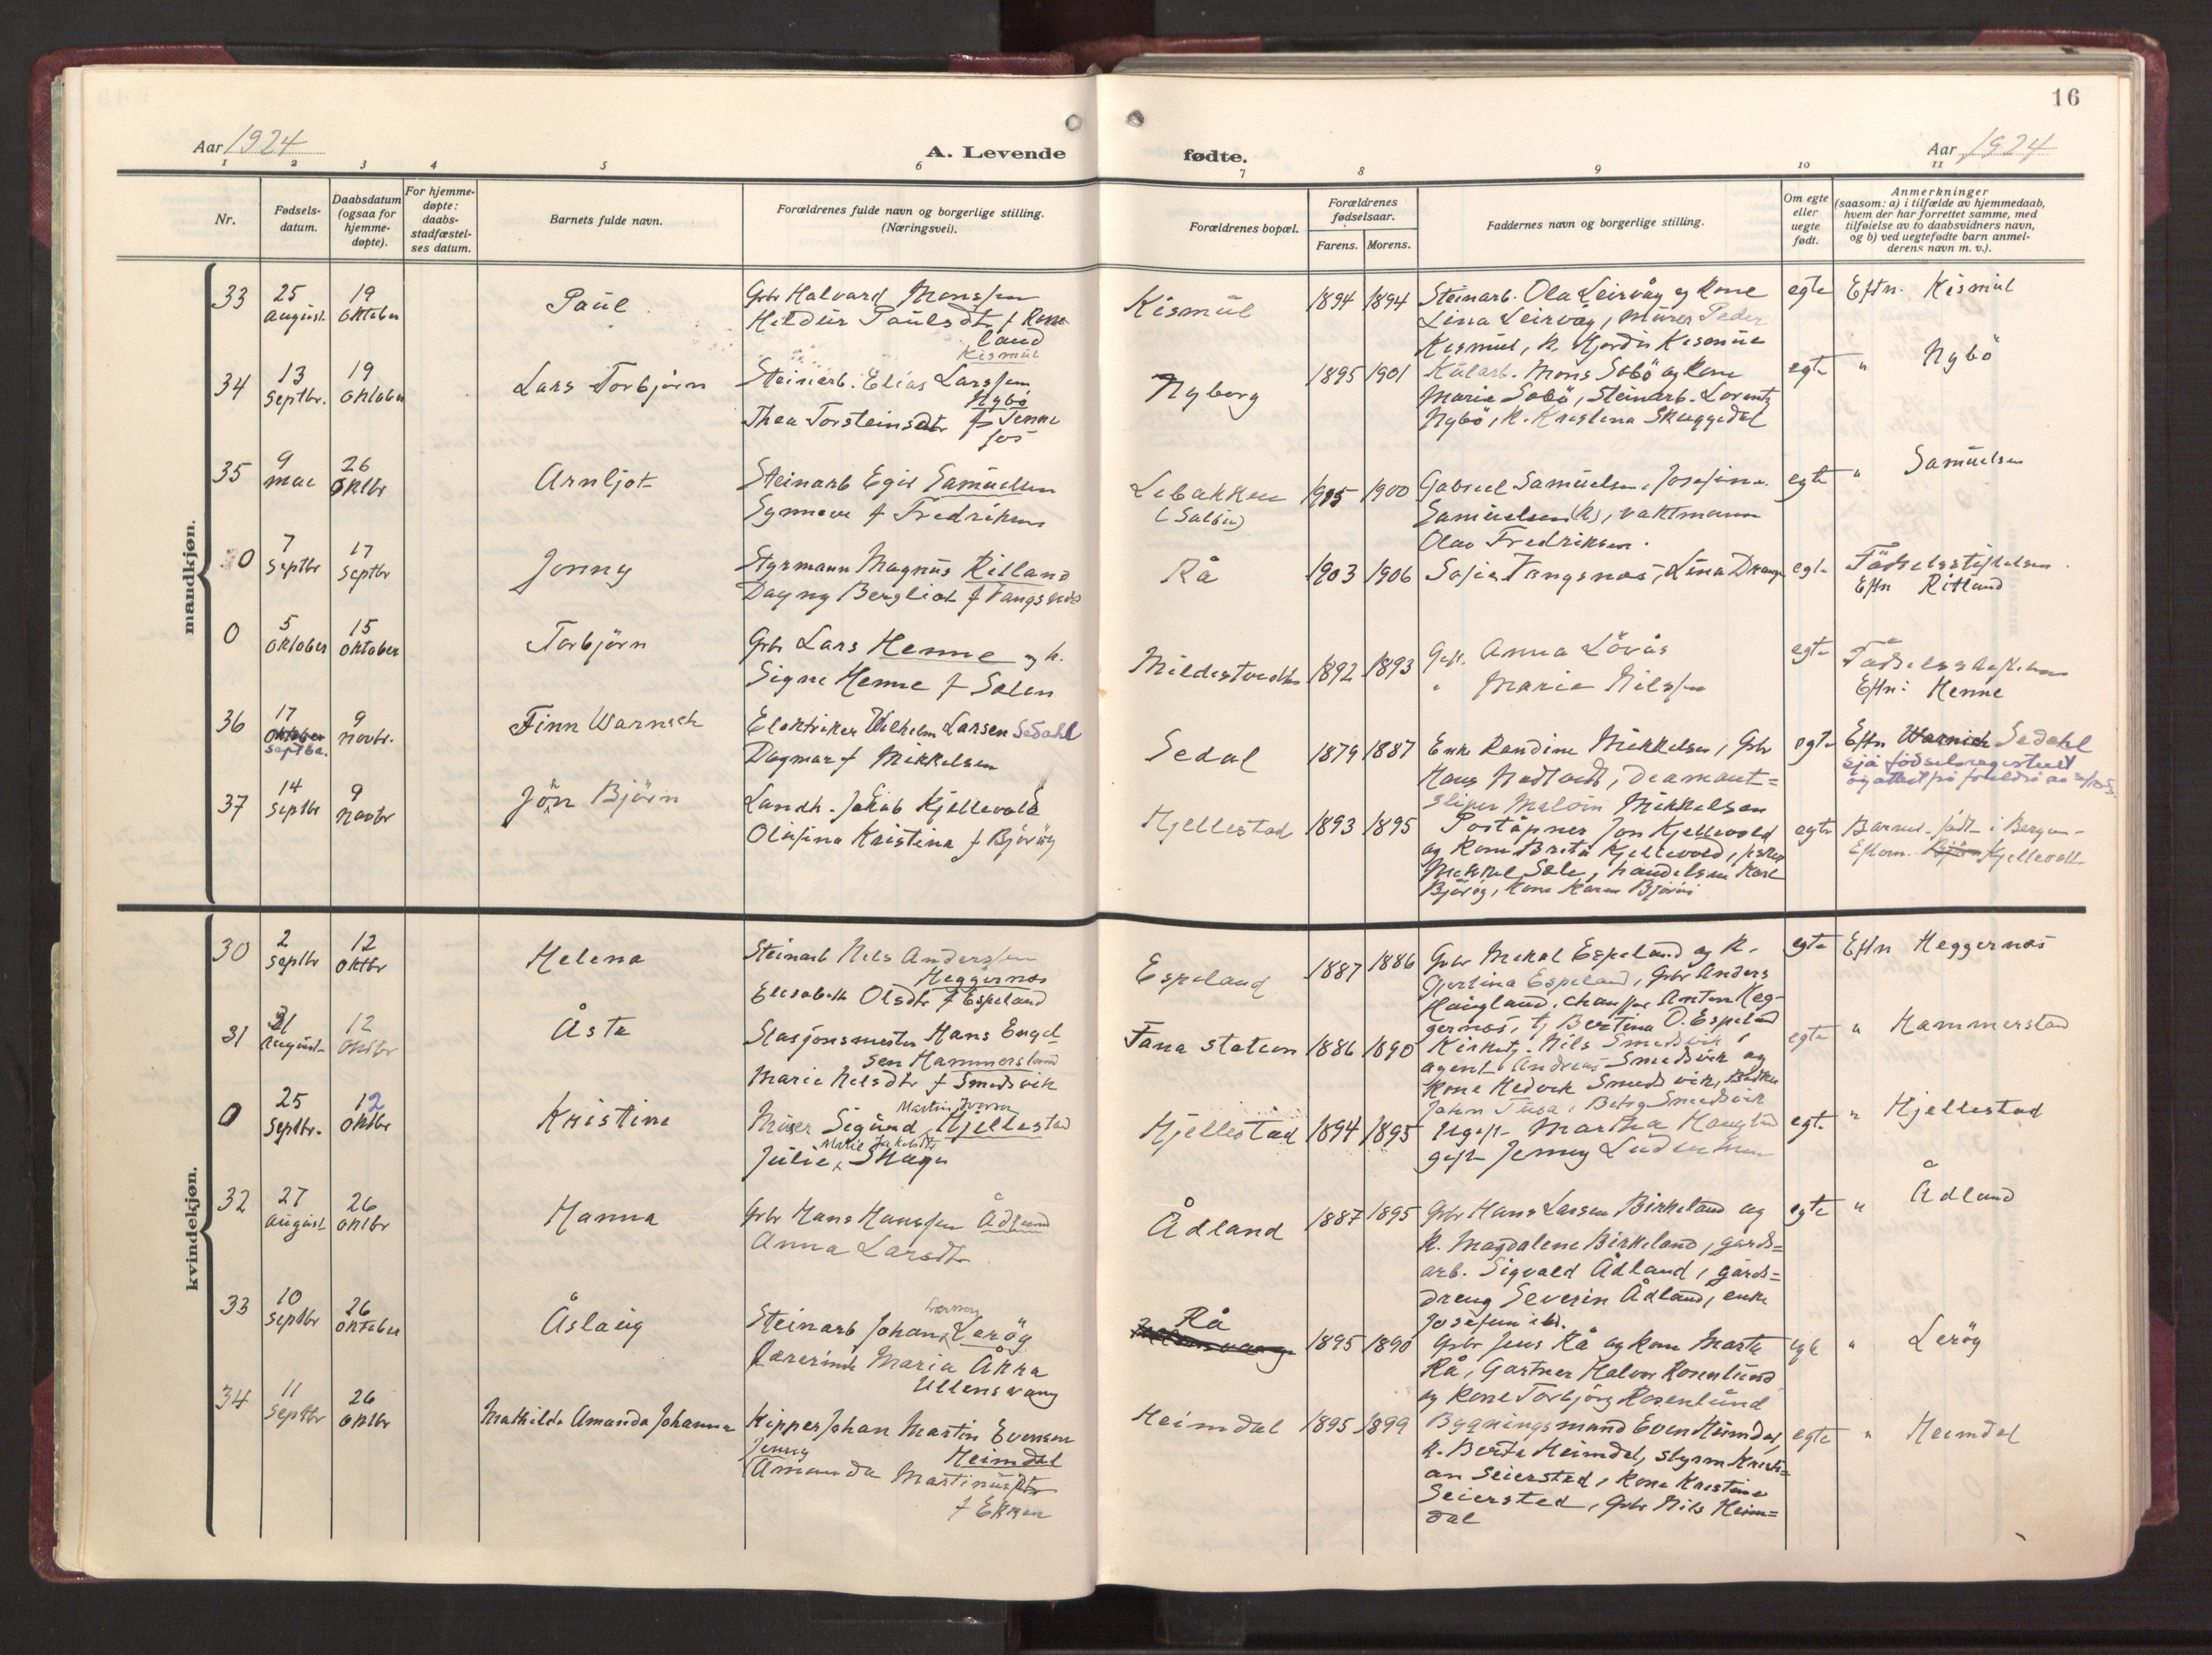 16
Aar 1924
A. Levende
fødte.
Aar 1924
1 2 3 4 5 6 7 8 9 10 11
Nr.
Fødsels-
datum.
Daabsdatum
(ogsaa for
hjemme-
døpte).
For hjemme-
døpte:
daabs-
stadfæstel-
ses datum.
Barnets fulde navn.
Forældrenes fulde navn og borgerlige stilling.
(Næringsvei).
Forældrenes bopæl.
Forældrenes
fødselsaar.
Farens. Morens.
Faddernes navn og borgerlige stilling.
Om egte
eller
uegte
født.
Anmerkninger
(saasom: a) i tilfælde av hjemmedaab,
hvem der har forrettet samme, med
tilføielse av to daabsvidners navn,
og b) ved uegtefødte barn anmel-
derens navn m. v.).
mandkjøn.
33
25
August
19
Oktober
Paul
Gbr Halvard Monssen
Hildur Paulsdtr f Rome
land
Kismul
Kismul
1894 1894
Steinarb. Ola Leirvåg og kone
Lina Leirvåg, murer Peder
Kismul, k. Hjørdis Kismul
egte
Eftn. Kismul
34
13
Septbr.
19
Oktober
Lars Torbjørn
Steinarb. Elias Larssen
Nybö
Thea Torsteinsdtr f Tenne
fos
Nyborg
1895 1901
Mons Sobö og kone
Maria Sobö, Steinarb. Lorentz
Nybö, k. Kristina Skuggedal
egte
" Nybö
35
9
mai
26
Oktbr
Arnljot
Steinarb Egil Samuelsen
Synnøve f Fredriksen
Lebakken
1900
Gabriel Samuelsen, Josefina
Samuelsen (k), vaktmann
Olav Fredriksen.
egte
" Samuelsen
0
7
Septbr
17
Septbr
Jonny
Styrmann Magnus Ritland
Dagny Bergliot f Vangsnes
Rå
1903 1906
Sofie Vangsnes, Lina Drange
egte
Födselsstiftelsen.
Eftn Ritland
0
5
Oktober
15
Oktober
Torbjørn
Gbr Lars Henne og h.
Signe Henne f Solem
Mildestvedt
1892 1893
Gift. Anna Lövås
" Marie Nilssen
egte
Eftn: Henne
36
17
Oktober
Septbr.
9
Novbr.
Finn Warnick
Elektriker Wilhelm Larsen Sedahl
Dagmar f Mikkelsen
Sedal
1879 1887
Enke Randine Mikkelsen, Gbr
Hans Nedtvedt, Diamant=
sliper Malvin Mikkelsen
egte
Eftn Warnick Sedahl
sjå födselsregisteret
37
14
Septbr
9
Novbr
Jon Björn
Landh. Jakob Kjellevold
Olufina Kristina f Björöy
Hjellestad
1893 1895
Poståpner Jon Kjellevold
og kone Brita Kjellevold, fisker
Mikkel Sele, handelsm Karl
Björöy, kone Karen Björöy
egte
Barnet født i Bergen.
Eftern. Kjellevold
kvindekjøn.
30
2
Septbr
12
Oktbr
Helena
Steinarb Nils Anderssen
Heggernes
Elisabeth Olsdtr f Espeland
Espeland
1887 1886
Gbr Mikal Espeland og k.
Gjertina Espeland, Gbr Anders
Haugland, chauffør Anton Heg-
gernes, tj Bertina O. Espeland
egte
Eftn Heggernes
31
31
August
12
Oktbr
Åsta
Stasjonsmester Hans Engel
sen Hammersland
Marie Nilsdtr f Smedsvik
Fana station
1886 1890
Kirketj. Nils Smedsvik,
agent Andreas Smedsvik og
kone Hedvik Smedsvik,
John Tusa, Betsy Smedsvik
egte
" Hammersland
0
25
Septbr.
12
Oktbr
Kristine
Martin Iversen
Murer Sigurd Hjellestad
Marie Jakobsdtr
Julie Skage
Hjellestad
1894 1895
Ugift Martha Haugland
gift Jenny
egte
" Hjellestad
32
27
August
26
Oktbr
Hanna
Gbr Hans Hanssen Ådland
Anna Larsdtr
Ådland
1887 1895
Gbr Hans Larsen Birkeland og
k. Magdalene Birkeland, gårds=
arb. Sigvald Ådland, gårds=
dreng Severin Ådland, enke
Josefine ibd.
egte
" Ådland
33
10
Septbr
26
Oktober
Åslaug
Steinarb Johan Lerög
Lærerinde Maria Åkra
Ullensvang
Rå
1895 1890
Gbr Jens Rå og kone Marta
Rå, Gartner Halvor Rosenlund
og kone Torbjörg Rosenlund
egte
" Lerög
34
11
Septbr
26
Oktbr
Mathilde Amanda Johanna
Kipper Johan Martin Evensen
Heimdal
Jenny
Amanda Martinusdtr
f Ekren
Heimdal
1895 1899
Bygningsmand Even Heimdal,
k. Berta Heimdal, styrm Kristi=
an Seiersted, kone Kristine
Seiersted, Gbr Nils Heim=
dal
egte
" Heimdal